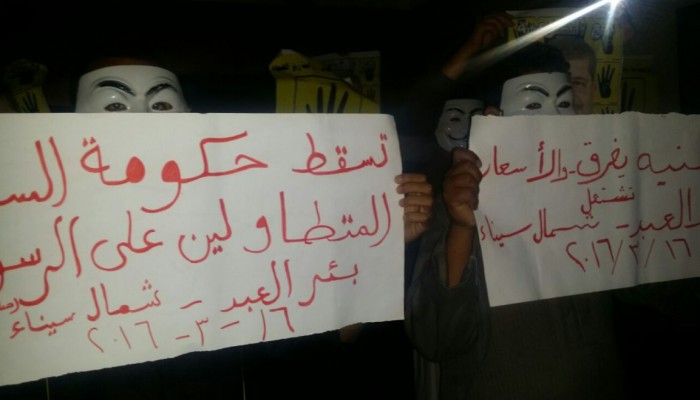 تسقط حكومة الس
المتطاولين على الرسو
بئر العبد - شمال سيناء
١٦ - ٣ - ٢٠١٦
نيه يغرق - والأسعار
تشتعل
العبد - شمال سيناء
٢٠١٦/٣/١٦